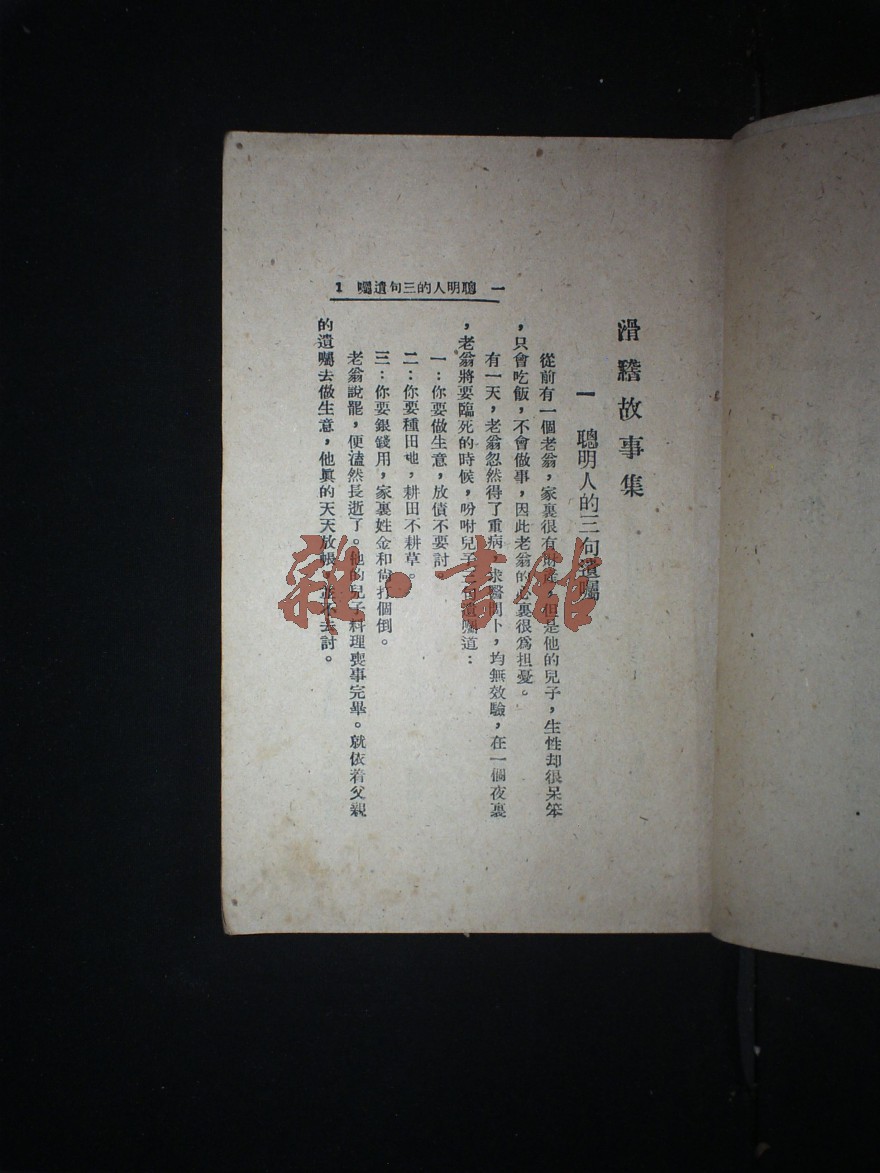 一　聰明人的三句遺囑　1
滑稽故事集
一　聰明人的三句遺囑
從前有一個老翁，家裏很有財產，但是他的兒子，生性却很呆笨
，只會吃飯，不會做事，因此老翁的心裏很爲担憂。
有一天，老翁忽然得了重病，求醫問卜，均無效驗，在一個夜裏
，老翁將要臨死的時候，吩咐兒子三句遺囑道：
一：你要做生意，放債不要討
二：你要種田地，耕田不耕草。
三：你要銀錢用，家裏姓金和尙打個倒。
老翁說罷，便溘然長逝了。他的兒子料理喪事完畢。就依着父親
的遺囑去做生意，他眞的天天放帳，並不去討。
雜·書館